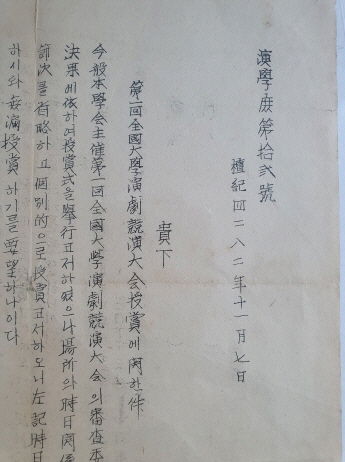 演學庶第拾弐號
檀紀四二八二年十一月七日
貴下
第一回全國大學演劇競演大會授賞에関한件
今般本學会主催第一回全國大學演劇競演大會의審査
決果에依하여授賞式을擧行고저하였으나場所의時日関係
節次를省略하고個別的으로授賞고저하오니左記時日
하시와 授賞하기를要望하나이다